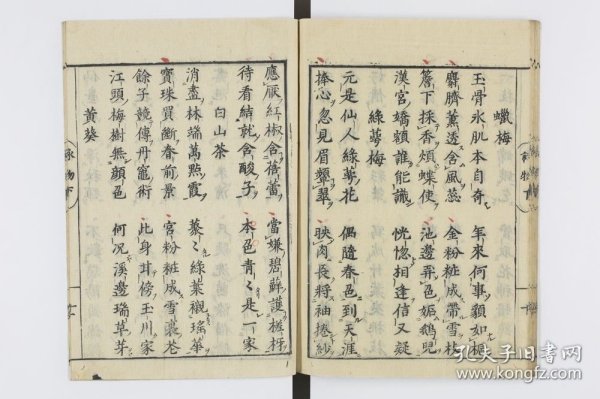 蠟梅
玉骨氷肌本自奇 年來何事額如
麝臍薰透含風蕊 金粉粧成帶雪枝
簷下採香煩蝶使 池邊弄色妬鵝兒
漢宮嬌額誰能識 恍惚相逢信又疑
綠萼梅
元是仙人綠萼花 偶隨春色到天涯
捧心忽見眉顰翠 映肉長將袖捲紗
應厭紅椒含蓓蕾 當嫌碧蘚護槎枒
待看結就含酸子 本色青〻是一家
白山茶
消盡林端萬點霞 蓁〻綠葉襯瑤華
寶珠買斷春前景 宮粉粧成雪裏花
餘子競傳丹竈術 此身甘傍玉川家
江頭梅樹無顔色 何況溪邊瑞草芽
黃葵
詠物
孔夫子旧书网
www.kongfz.com